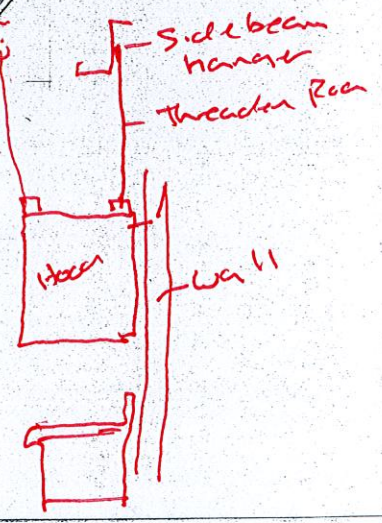 Sidebeam
hanger
Threaded Rod
Hood
wall